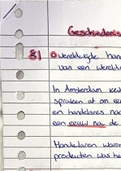 Geschiedenis
§1 Wereldwijde han
van een wereld
In Amsterdam kw
spraken af om een
en handelsreis naar
een eeuw na de
Handelaren waren
producten was he